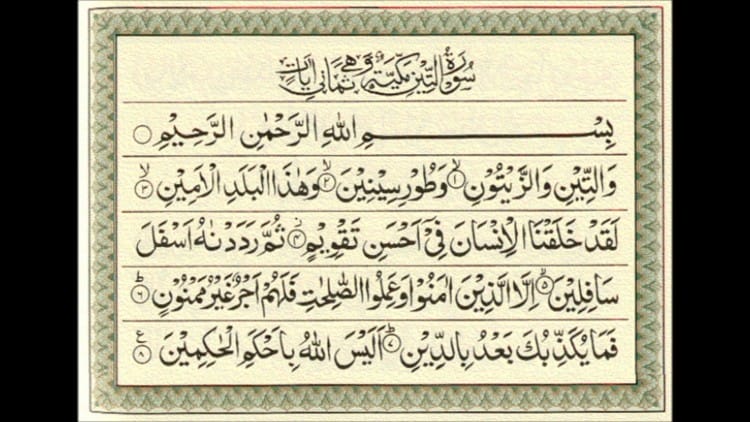 سُوْرَةُ التِّيْنِ مَكِّيَّةٌ وَّهِيَ ثَمَانِيْ اٰيَاتٍ
بِسْمِ اللّٰهِ الرَّحْمٰنِ الرَّحِيْمِ ۝
وَالتِّيْنِ وَالزَّيْتُوْنِ ۙ﴿۱﴾ وَطُوْرِ سِيْنِيْنَ ۙ﴿۲﴾ وَهٰذَا الْبَلَدِ الْاَمِيْنِ ۙ﴿۳﴾
لَقَدْ خَلَقْنَا الْاِنْسَانَ فِيْۤ اَحْسَنِ تَقْوِيْمٍ ۫﴿۴﴾ ثُمَّ رَدَدْنٰهُ اَسْفَلَ
سَافِلِيْنَ ۙ﴿۵﴾ اِلَّا الَّذِيْنَ اٰمَنُوْا وَعَمِلُوا الصّٰلِحٰتِ فَلَهُمْ اَجْرٌ غَيْرُ مَمْنُوْنٍ ؕ﴿۶﴾
فَمَا يُكَذِّبُكَ بَعْدُ بِالدِّيْنِ ؕ﴿۷﴾ اَلَيْسَ اللّٰهُ بِاَحْكَمِ الْحٰكِمِيْنَ ﴿۸﴾ ع